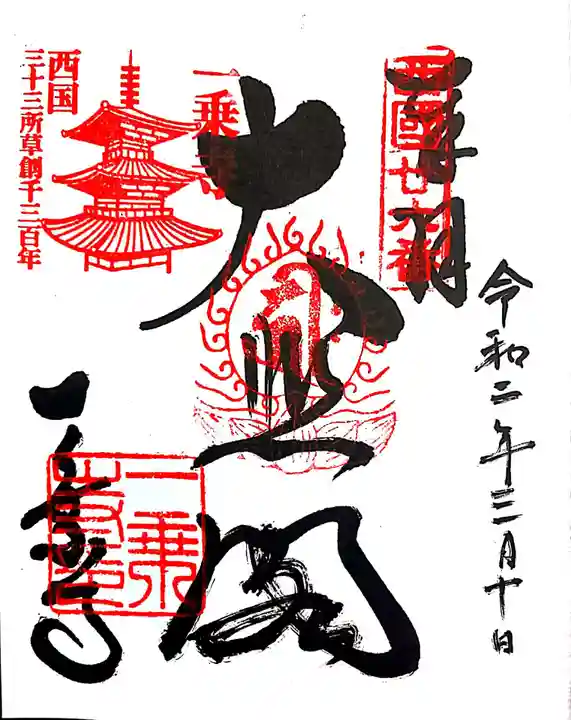 令和二年三月十日
奉拝
西國廿六番
大悲閣
一乗寺
西国
三十三所草創千三百年
一乗寺
一乗寺印